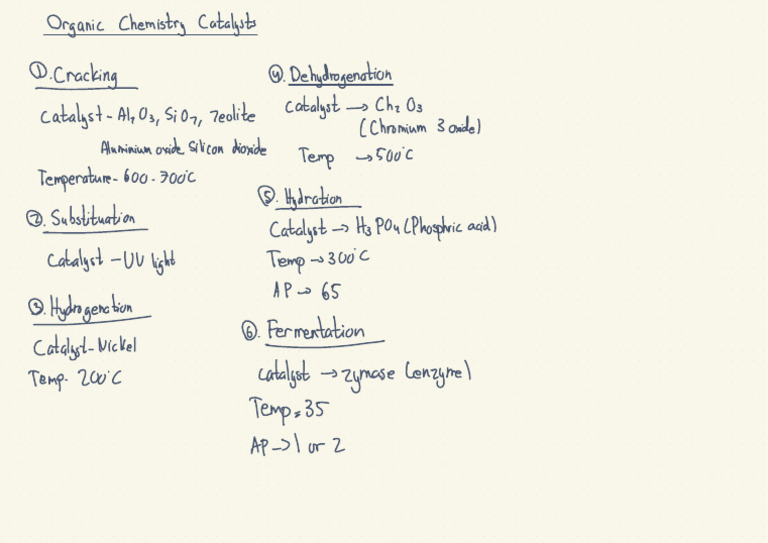 Organic Chemistry Catalysts
①. Cracking
Catalyst - Al2O3, SiO2, Zeolite
Aluminium oxide Silicon dioxide
Temperature - 600 - 700°C
②. Substituation
Catalyst - UV light
③. Hydrogenation
Catalyst - Nickel
Temp. 200°C
④. Dehydrogenation
Catalyst → Ch2 O3
(Chromium 3 oxide)
Temp → 500°C
⑤. Hydration
Catalyst → H3PO4 (Phosphric acid)
Temp → 300°C
AP → 65
⑥. Fermentation
Catalyst → Zymase (enzyme)
Temp = 35
AP → 1 or 2